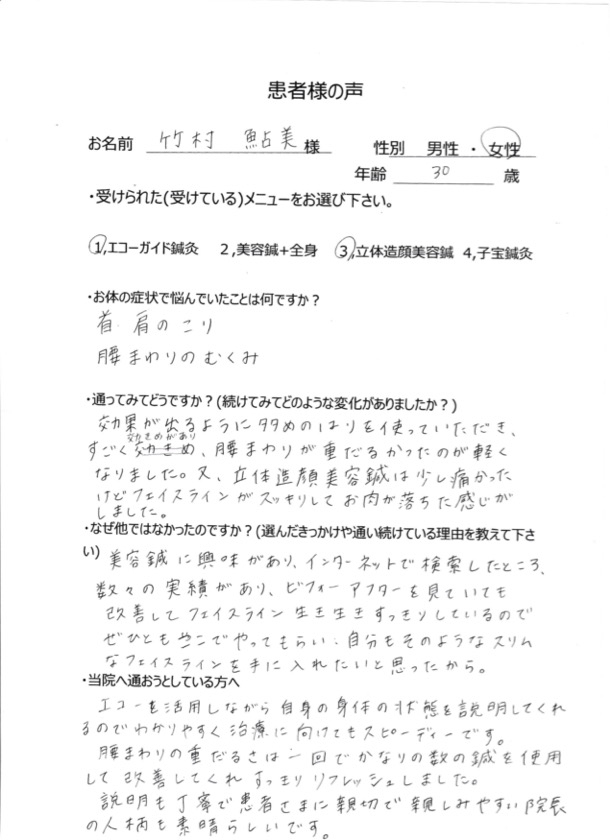 患者様の声
お名前 竹村 鮎美 様 性別 男性・女性
年齢 30 歳
・受けられた(受けている)メニューをお選び下さい。
1,エコーガイド鍼灸 2,美容鍼+全身 3,立体造顔美容鍼 4,子宝鍼灸
・お体の症状で悩んでいたことは何ですか？
首 肩のこり
腰まわりのむくみ
・通ってみてどうですか？(続けてみてどのような変化がありましたか？)
効果が出るように多めのはりを使っていただき、
効きめがあり
すごく効きめ、腰まわりが重だるかったのが軽く
なりました。又、立体造顔美容鍼は少し痛かった
けどフェイスラインがスッキリしてお肉が落ちた感じが
しました。
・なぜ他ではなかったのですか？(選んだきっかけや通い続けている理由を教えて下さ
い)
美容鍼に興味があり、インターネットで検索したところ、
数々の実績があり、ビフォーアフターを見ていても
改善してフェイスライン生き生きすっきりしているので
ぜひともここでやってもらい、自分もそのようなスリム
なフェイスラインを手に入れたいと思ったから。
・当院へ通おうとしている方へ
エコーを活用しながら自身の身体の状態を説明してくれ
るのでわかりやすく治療に向けてもスピーディーです。
腰まわりの重だるさは一回でかなりの数の鍼を使用
して改善してくれすっきりリフレッシュしました。
説明も丁寧で患者さまに親切で親しみやすい院長
の人柄も素晴らしいです。